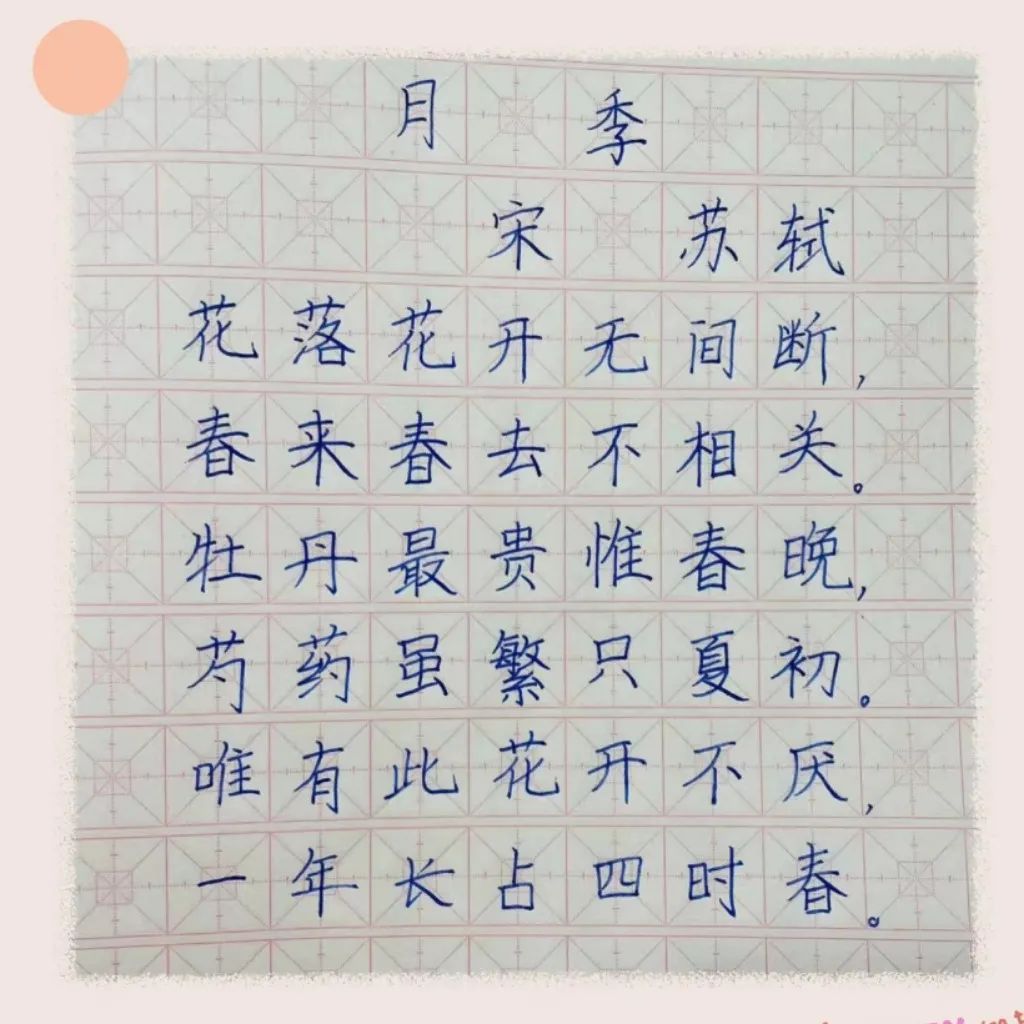 月季
宋 苏轼
花落花开无间断，
春来春去不相关。
牡丹最贵惟春晚，
芍药虽繁只夏初。
唯有此花开不厌，
一年长占四时春。